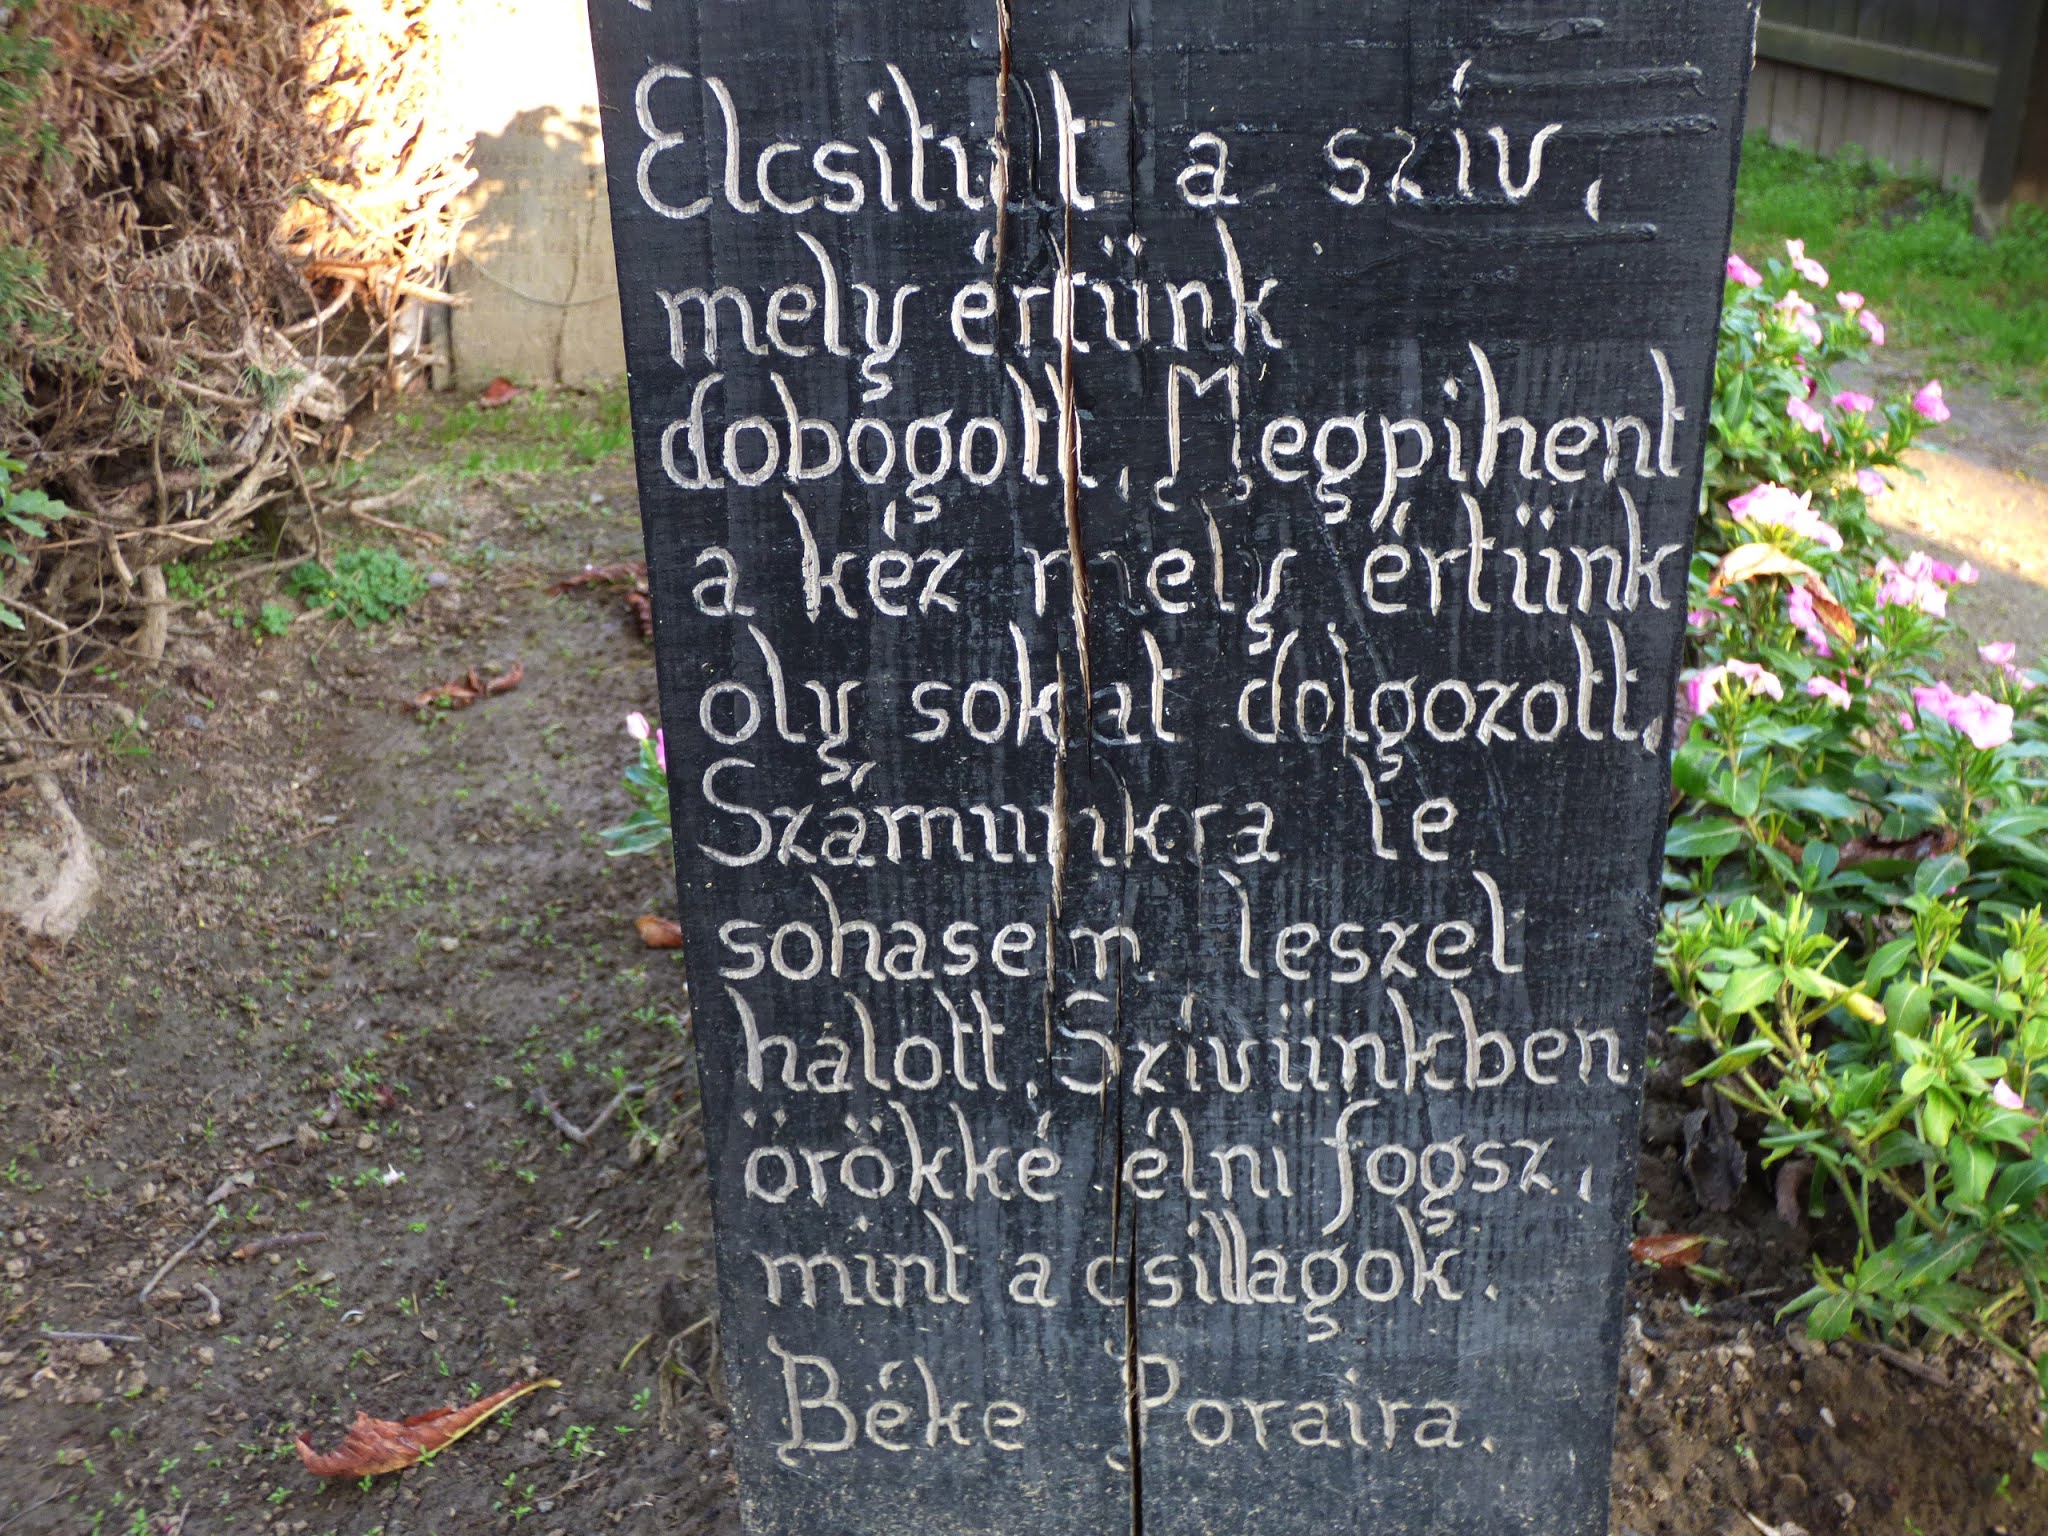 Elcsitult a szív,
mely értünk
dobogott, Megpihent
a kéz mely értünk
oly sokat dolgozott,
Számunkra te
sohasem leszel
halott, Szivünkben
örökké élni fogsz,
mint a csillagok.
Béke Poraira.